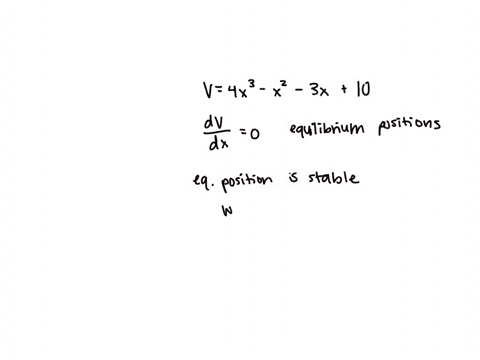 V = 4x³ - x² - 3x + 10
dV/dx = 0 equilibrium positions
eq. position is stable
w